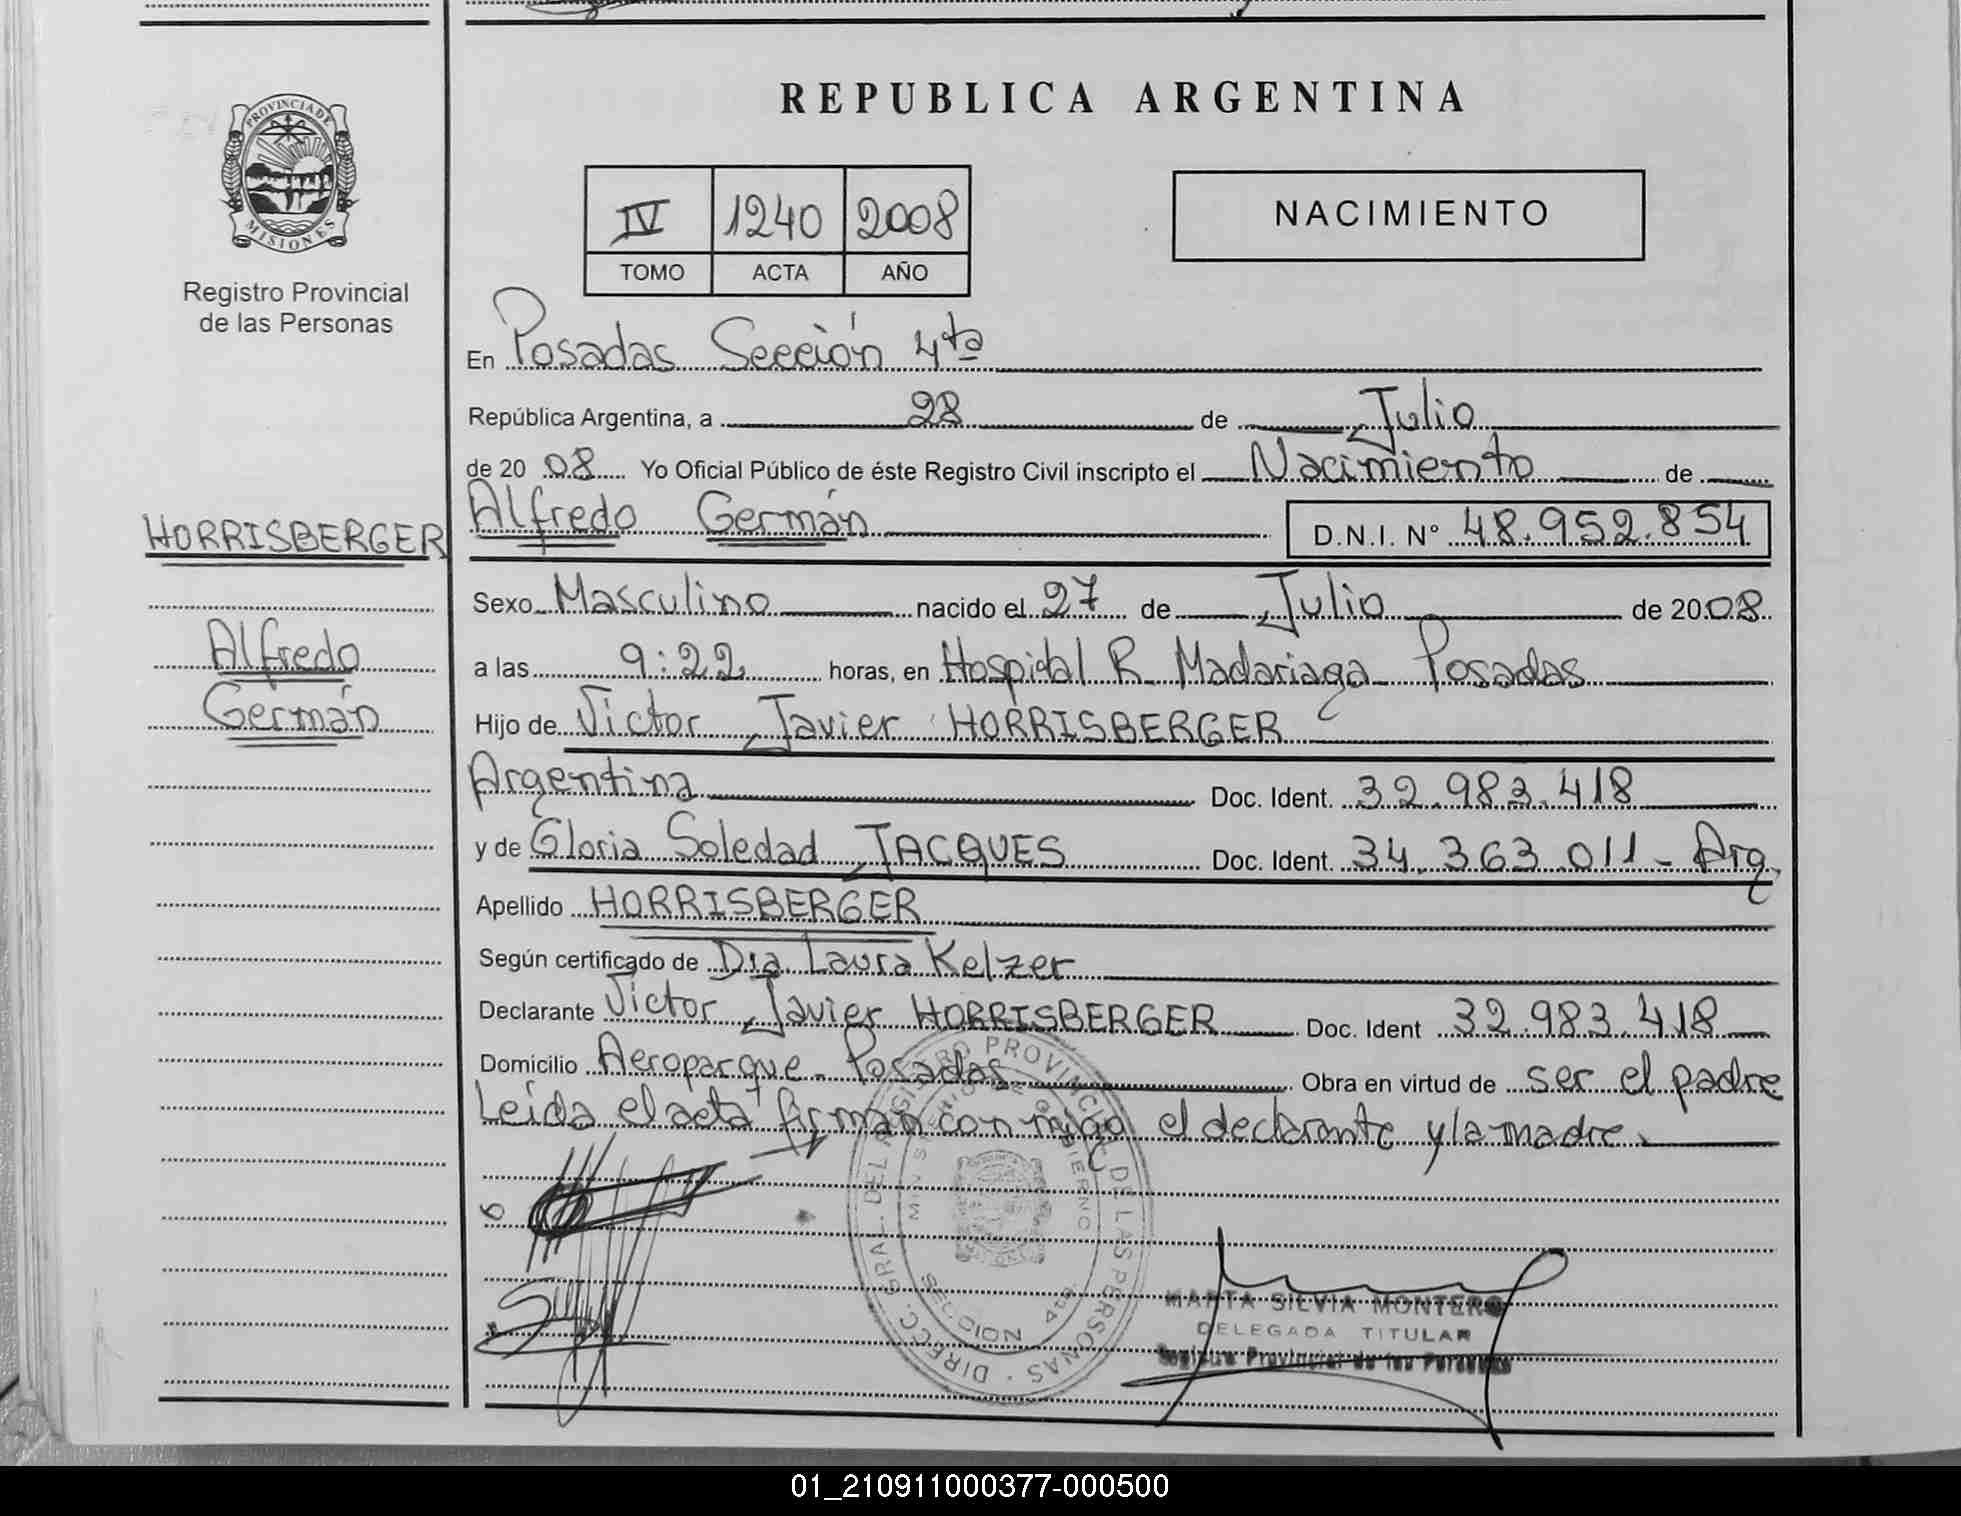 REPUBLICA ARGENTINA
PROVINCIA DE
MISIONES
Registro Provincial
de las Personas
IV 1240 2008
TOMO ACTA AÑO
NACIMIENTO
En Posadas Sección 4ta
República Argentina, a 28 de Julio
de 20 08 Yo Oficial Público de éste Registro Civil inscripto el Nacimiento de
HORRISBERGER
Alfredo
Germán
Alfredo Germán D.N.I. N° 48.952.854
Sexo Masculino nacido el 27 de Julio de 20 08
a las 9:22 horas, en Hospital R. Madariaga Posadas
Hijo de Victor Javier HORRISBERGER
Argentina Doc. Ident. 32.983.418
y de Gloria Soledad JACQUES Doc. Ident. 34.363.011 - Arg.
Apellido HORRISBERGER
Según certificado de Dra Laura Kelzer
Declarante Victor Javier HORRISBERGER Doc. Ident 32.983.418
Domicilio Aeroparque - Posadas Obra en virtud de ser el padre
Leída el acta firman conmigo el declarante y la madre.
DIRECC. GRAL. DEL REGISTRO PROVINCIAL DE LAS PERSONAS
MINISTERIO DE GOBIERNO
SECCION 4ta.
MARTA SILVIA MONTERO
DELEGADA TITULAR
Registro Provincial de las Personas
01_210911000377-000500